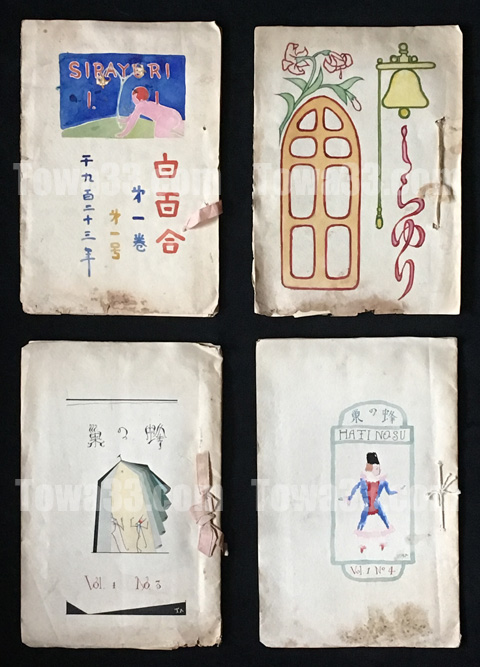 SIRAYURI
I. I
白百合
㐧一巻
㐧一号
千九百二十三年
Towa33.com
しらゆり
Towa33.com
蜂の巣
Vol. 1 No 3
Towa33.com
蜂の巣
HATI NO SU
Vol. 1 No 4
Towa33.com